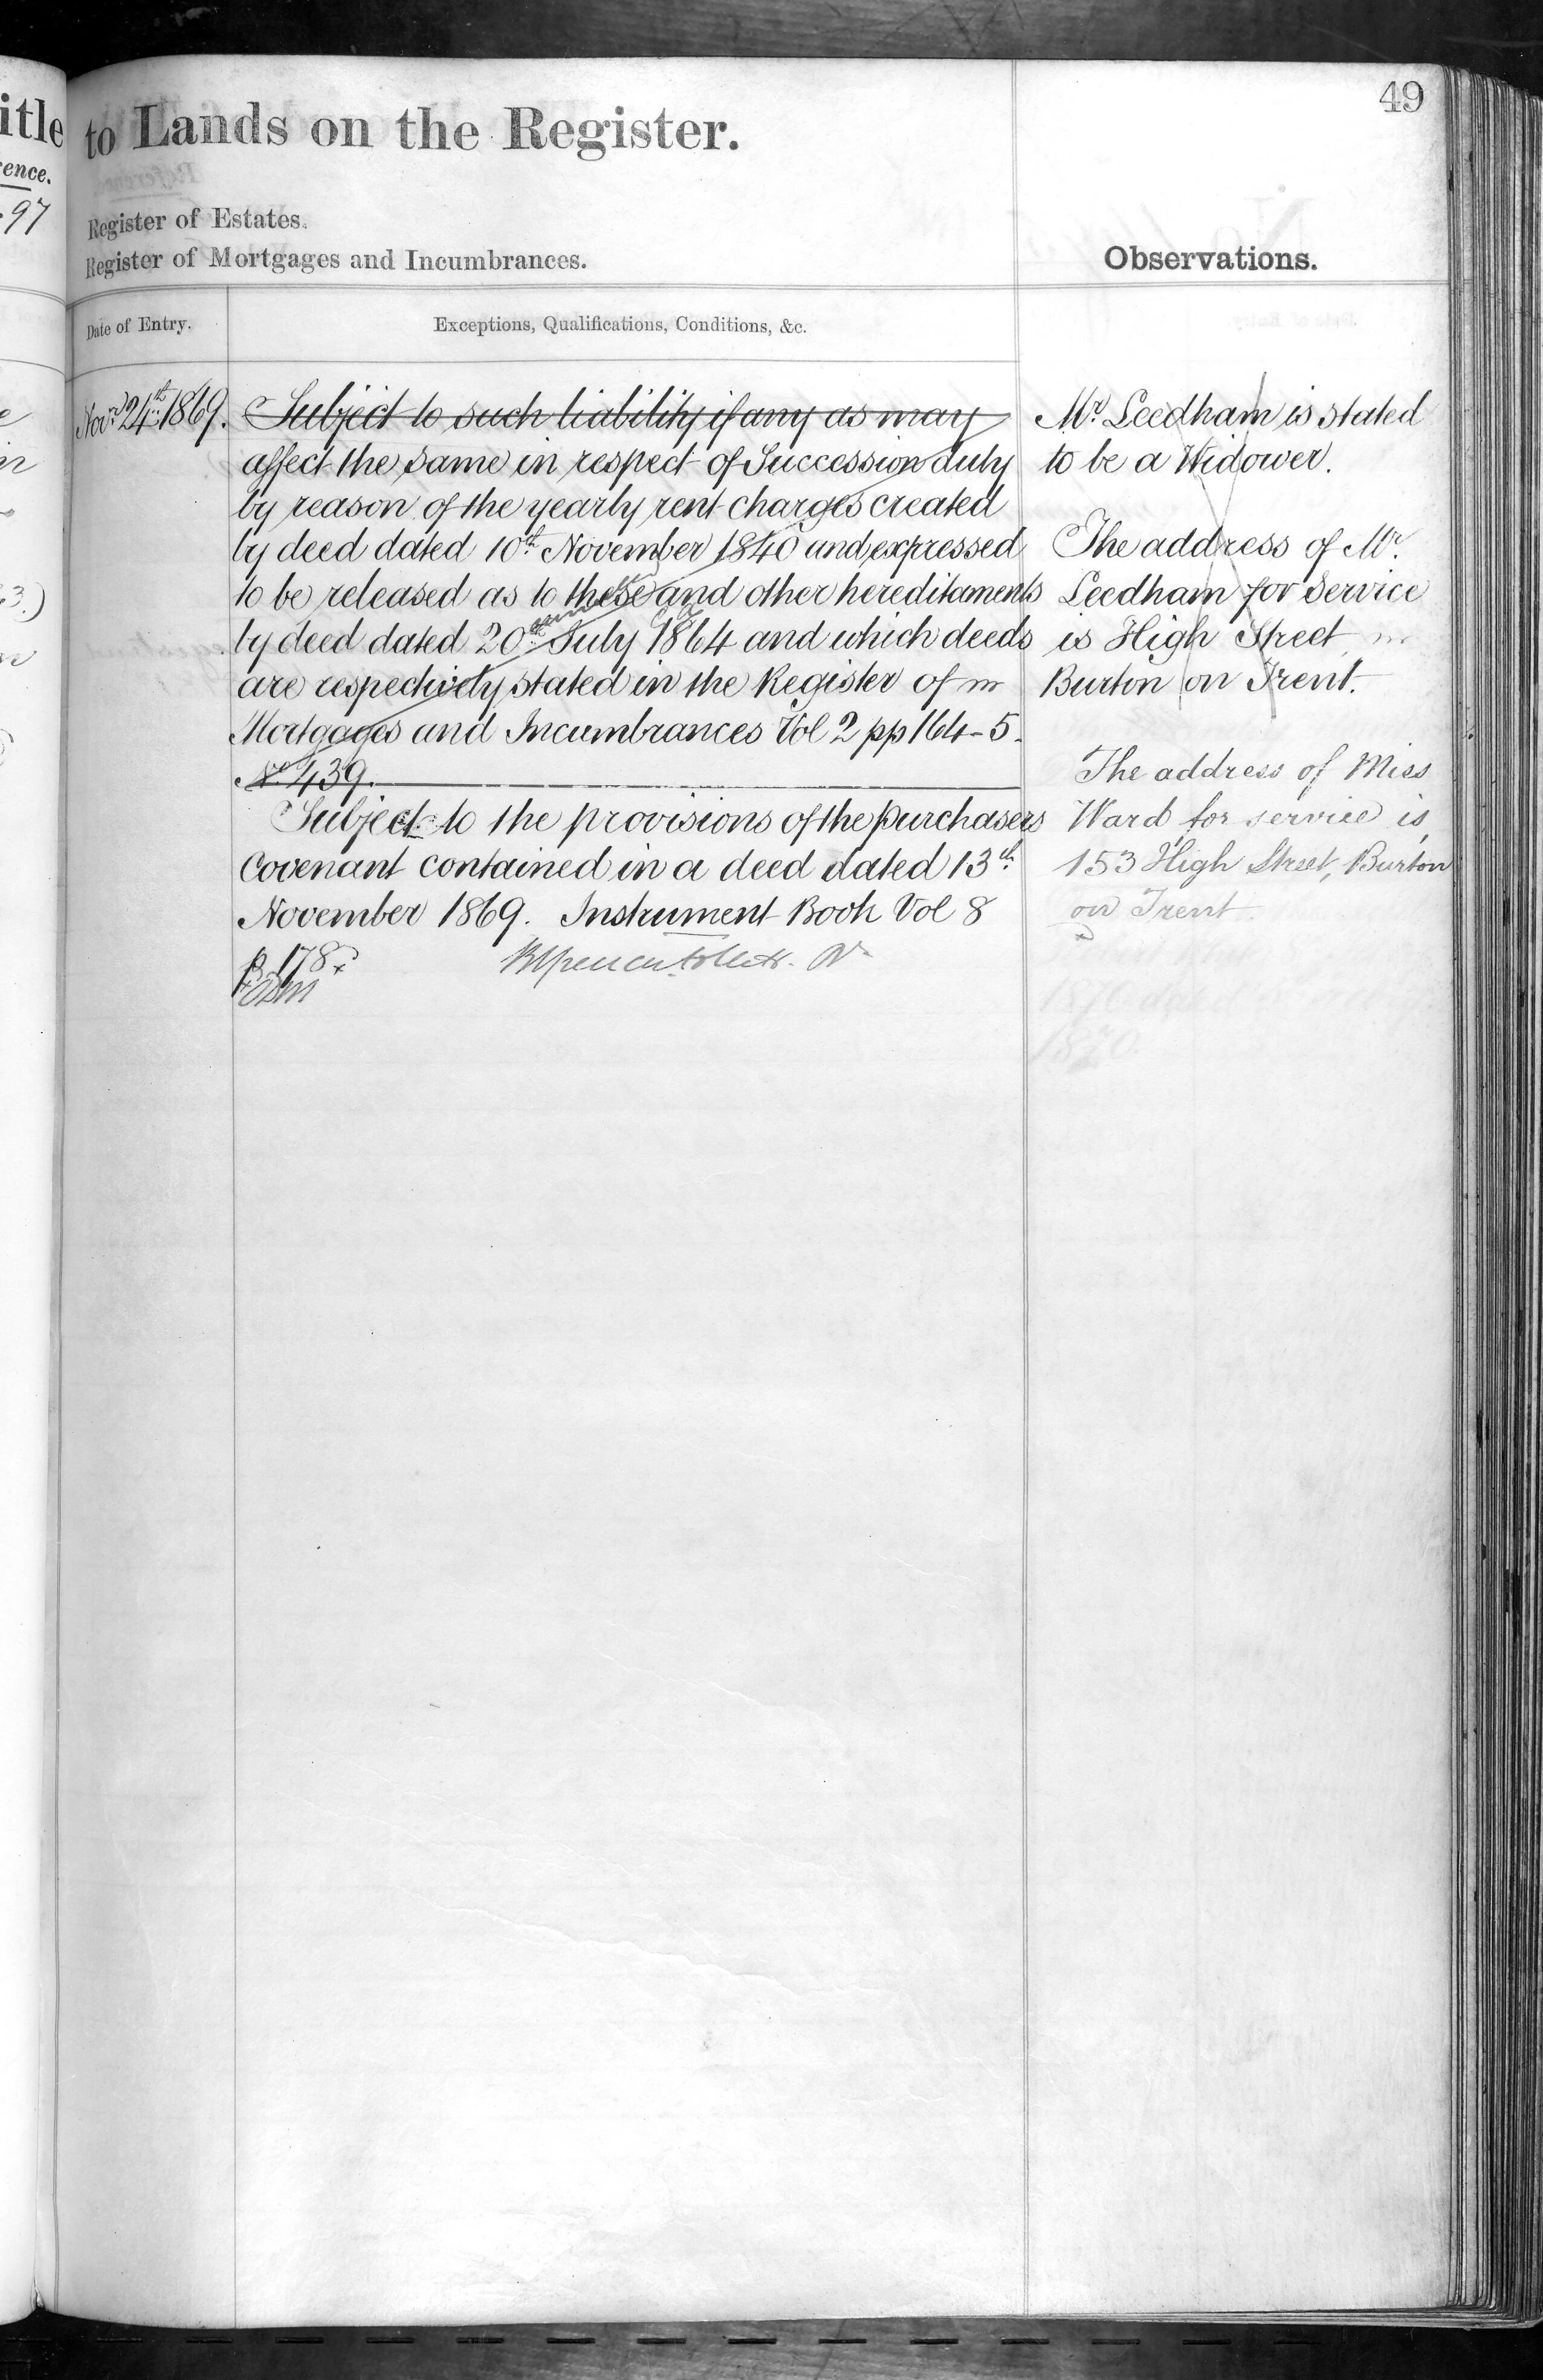 49
itle
to Lands on the Register.
ence.
97
Register of Estates.
Register of Mortgages and Incumbrances.
Observations.
Date of Entry.
Exceptions, Qualifications, Conditions, &c.
Novr 24th 1869.
Subject to such liability if any as may
affect the same in respect of Succession duty
by reason of the yearly rent charges created
by deed dated 10th November 1840 and expressed
to be released as to these and other hereditaments
by deed dated 20th July 1864 and which deeds
are respectively stated in the Register of
Mortgages and Incumbrances Vol 2 pp 164-5.
No 439.
Subject to the provisions of the purchasers
Covenant contained in a deed dated 13th
November 1869. Instrument Book Vol 8
p 178
Mr. Leedham is stated
to be a Widower.
The address of Mr.
Leedham for service
is High Street
Burton on Trent.
The address of Miss
Ward for service is
153 High Street, Burton
on Trent.